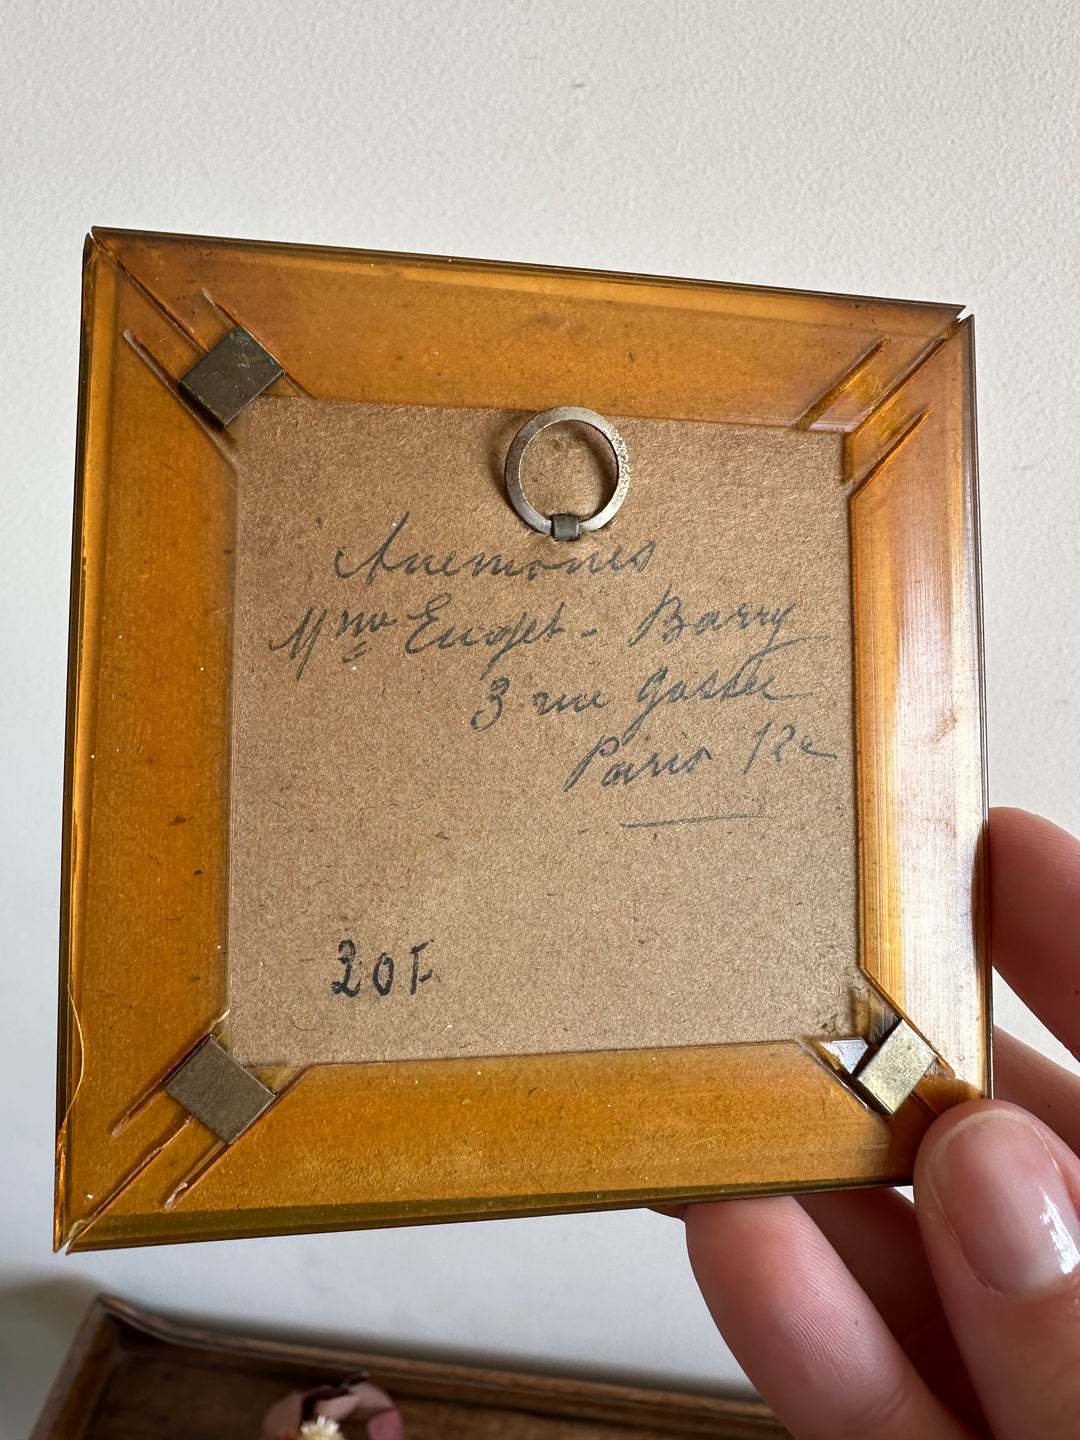 Anemones
Mme - Barry
3 rue
Paris 12e
20F